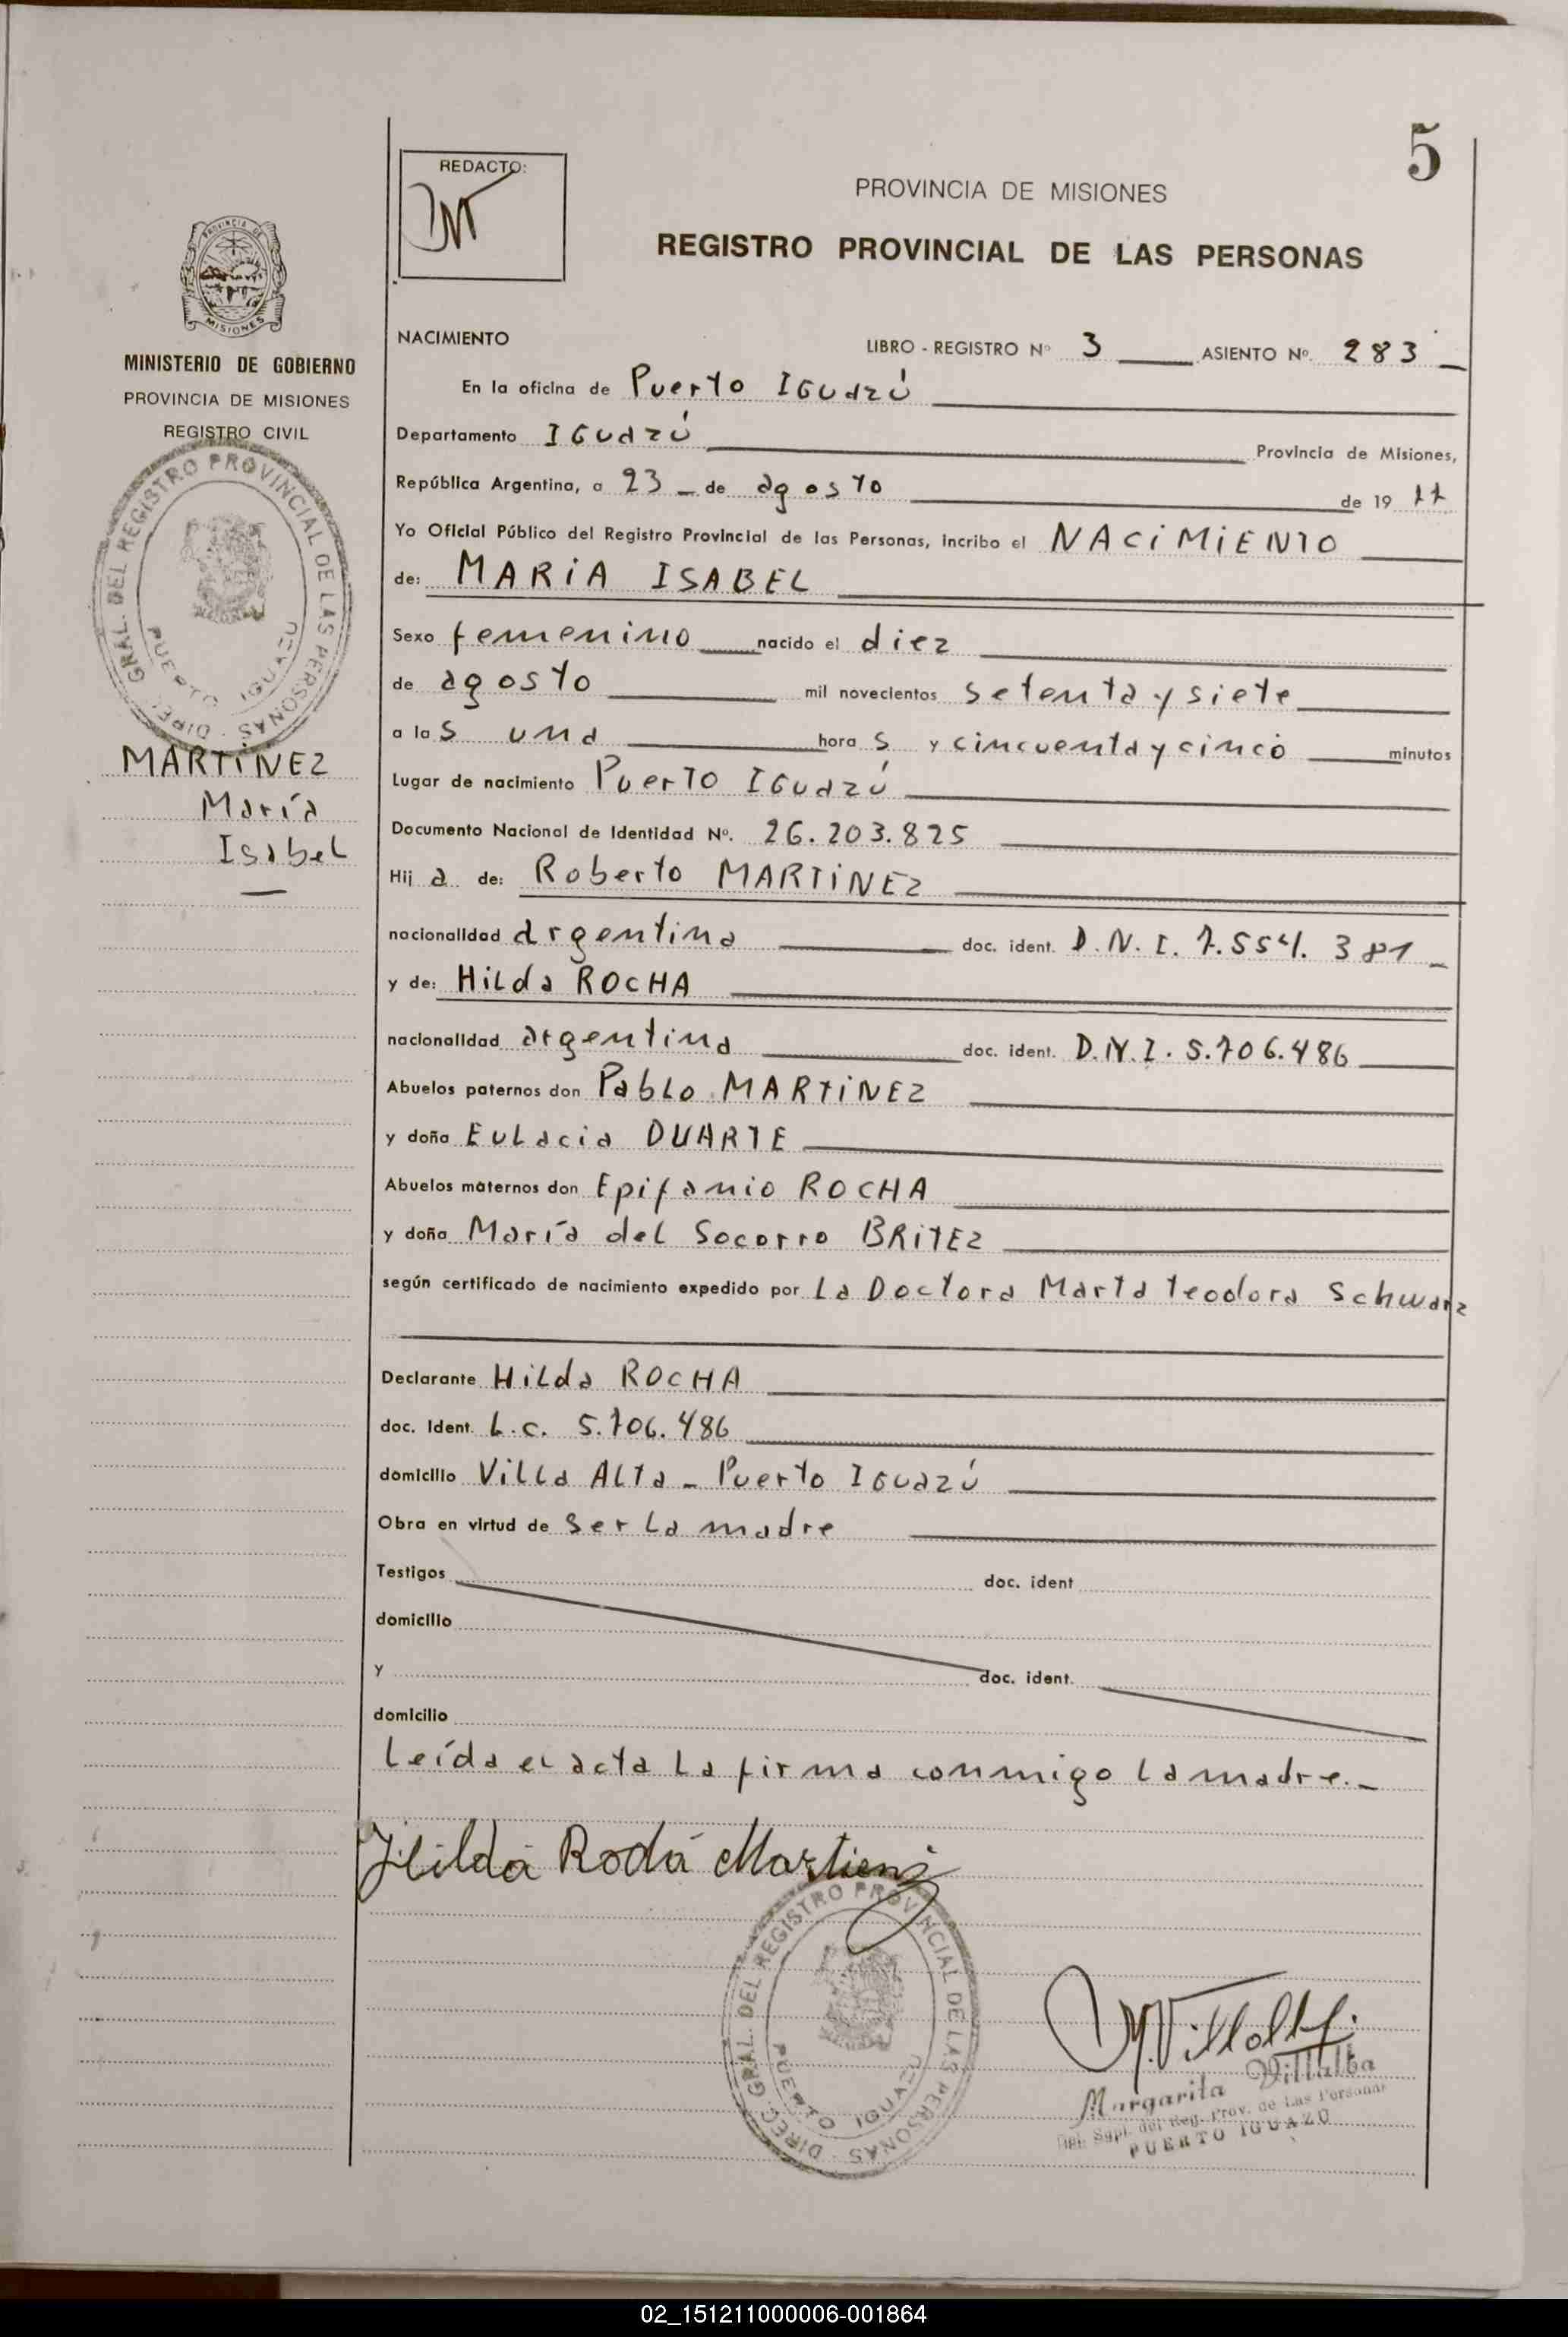 5
REDACTO:
PROVINCIA DE MISIONES
REGISTRO PROVINCIAL DE LAS PERSONAS
PROVINCIA DE
MISIONES
MINISTERIO DE GOBIERNO
PROVINCIA DE MISIONES
REGISTRO CIVIL
DIREC. GRAL. DEL REGISTRO PROVINCIAL DE LAS PERSONAS
PUERTO IGUAZU
MARTiNEZ
María
Isabel
NACIMIENTO LIBRO - REGISTRO Nº 3 ASIENTO Nº 283
En la oficina de Puerto IGuazú
Departamento IGuazú Provincia de Misiones,
República Argentina, a 23 de agosto de 19 77
Yo Oficial Público del Registro Provincial de las Personas, incribo el NACiMiENTO
de: MARiA ISABEL
Sexo femenino nacido el diez
de agosto mil novecientos setenta y siete
a las una horas y cincuenta y cinco minutos
Lugar de nacimiento Puerto IGuazú
Documento Nacional de Identidad Nº. 26.203.825
Hija de: Roberto MARTiNEZ
nacionalidad argentina doc. ident. D.N.I. 7.554.381
y de: Hilda ROCHA
nacionalidad argentina doc. ident. D.N.I. 5.706.486
Abuelos paternos don Pablo MARTiNEZ
y doña Eulacia DUARTE
Abuelos maternos don Epifanio ROCHA
y doña María del Socorro BRiTEZ
según certificado de nacimiento expedido por La Doctora Marta teodora Schwarz
Declarante Hilda ROCHA
doc. Ident. L.C. 5.706.486
domicilio Villa Alta - Puerto IGuazú
Obra en virtud de ser la madre
Testigos doc. ident
domicilio
y doc. ident.
domicilio
Leída el acta la firma conmigo la madre.-
Hilda Roda Martienz
DIREC. GRAL. DEL REGISTRO PROVINCIAL DE LAS PERSONAS
PUERTO IGUAZU
M. Villalba
Margarita Villalba
Supl. del Reg. Prov. de Las Personas
PUERTO IGUAZU
02_151211000006-001864